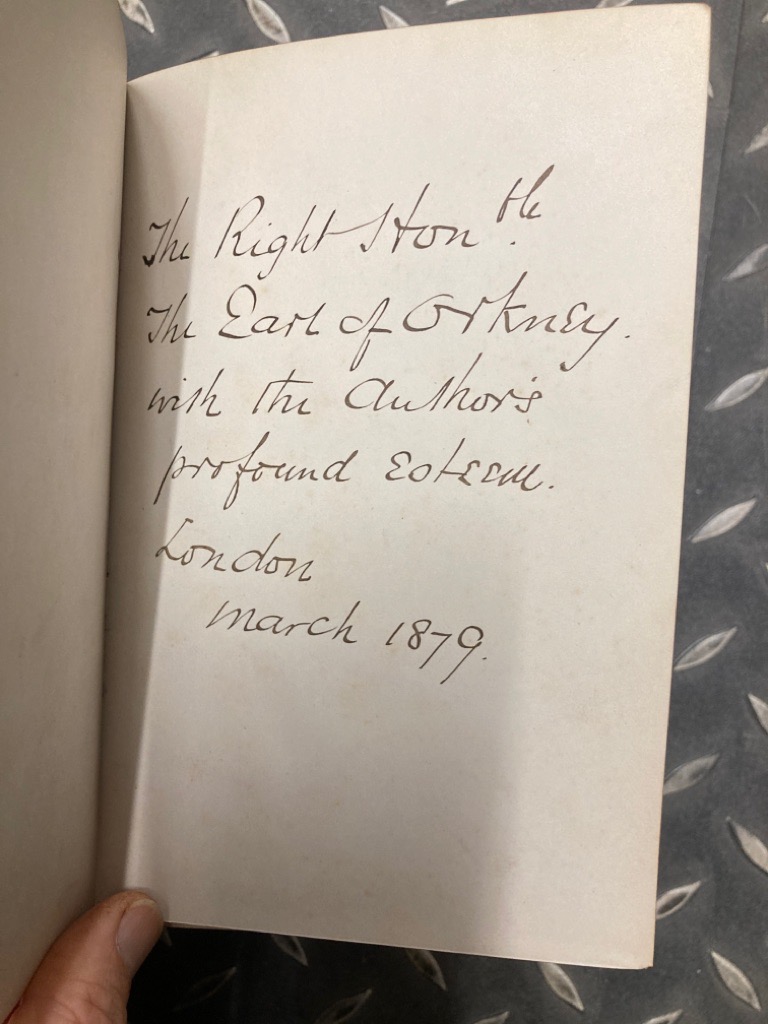 The Right Honble.
The Earl of Orkney.
with the Author's
profound Esteem.
London
March 1879.